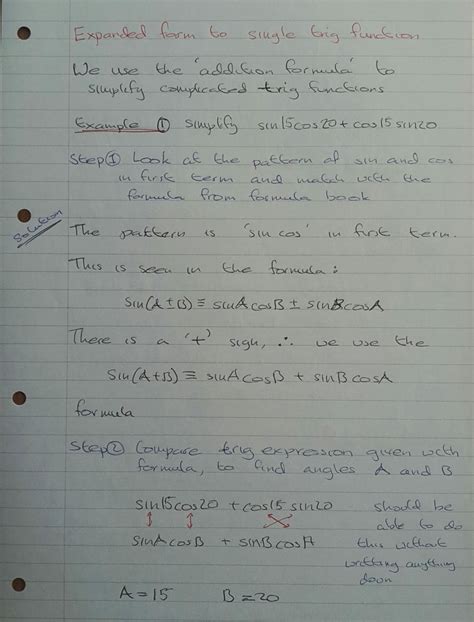 Expanded form to single trig function
We use the 'addition formula' to
simplify complicated trig functions
Example ① simplify sin15cos20 + cos15 sin20
Step ① Look at the pattern of sin and cos
in first term and match with the
formula from formula book
Solution
The pattern is 'sin cos' in first term.
This is seen in the formula :
sin(A ± B) ≡ sinAcosB ± sinBcosA
There is a '+' sign, ∴ we use the
sin(A+B) ≡ sinAcosB + sinBcosA
formula
Step ② Compare trig expression given with
formula, to find angles A and B
sin15cos20 + cos15 sin20
sinAcosB + sinBcosA
should be
able to do
this without
writting anything
down
A = 15 B = 20